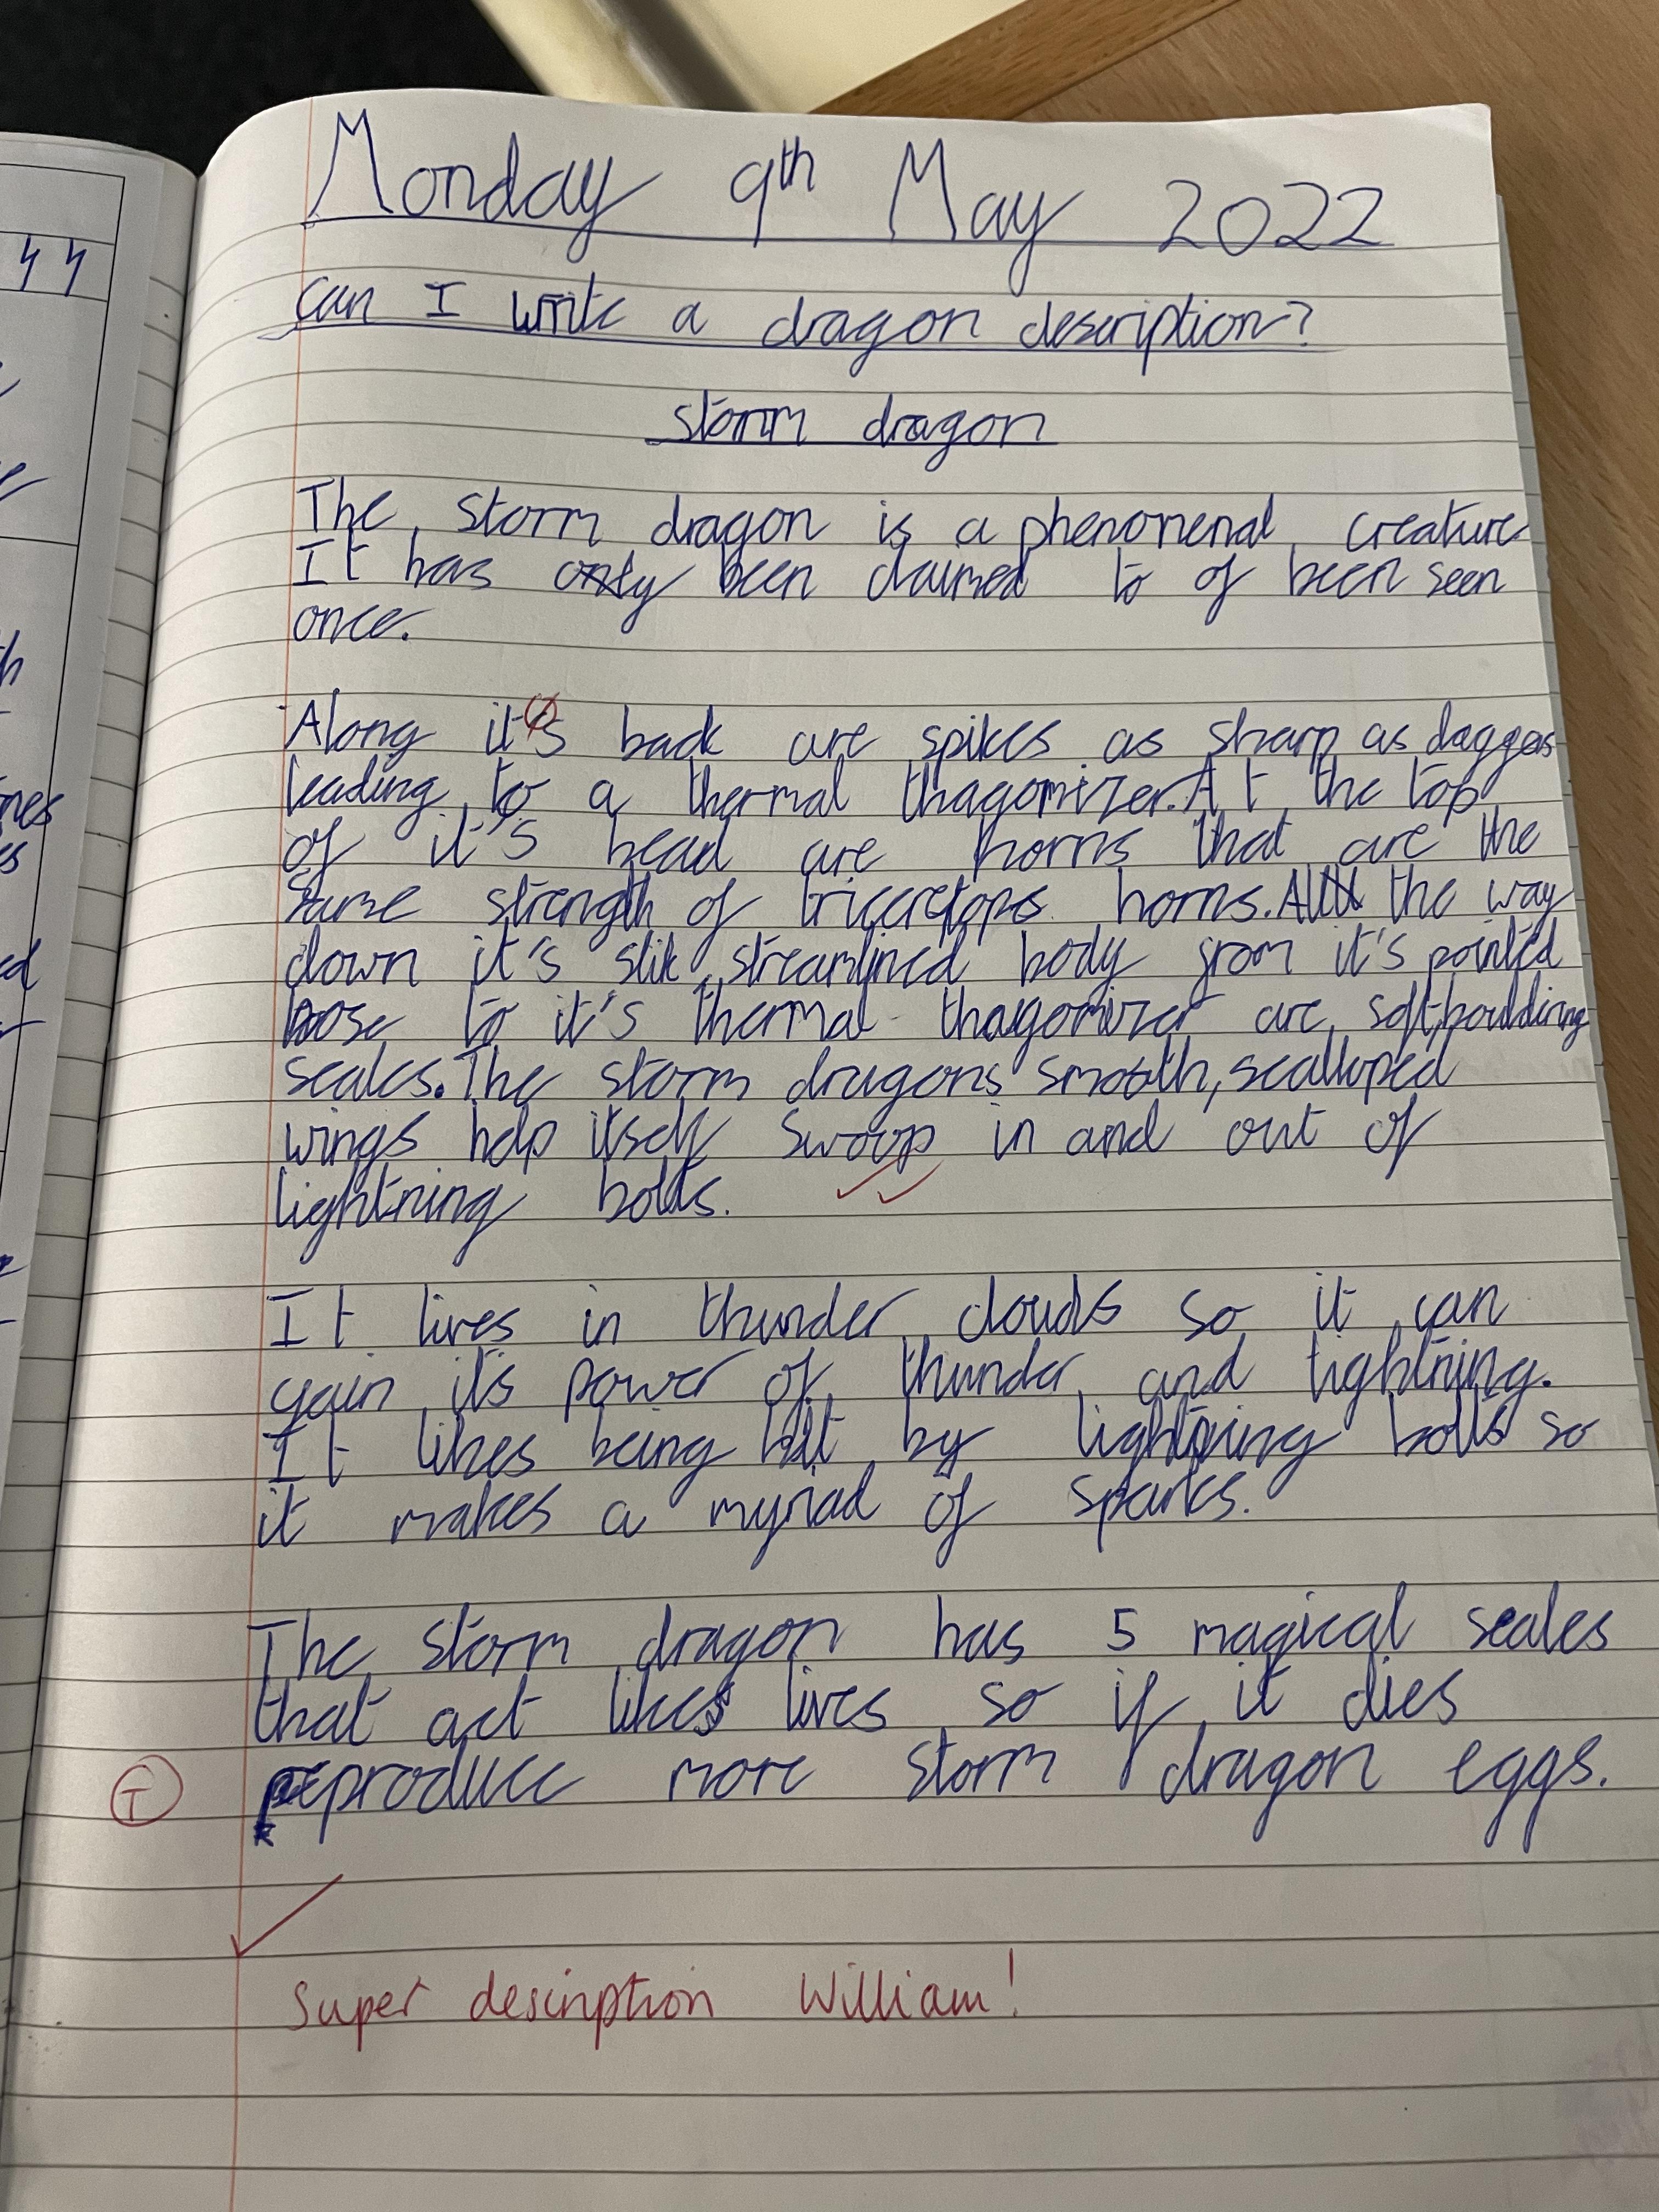 Monday 9th May 2022
Can I write a dragon description?
Storm dragon
The storm dragon is a phenomenal creature
It has only been claimed to of been seen
once.
Along it's back are spikes as sharp as daggers
leading to a thermal thagomizer. At the top
of it's head are horns that are the
same strength of triceretops horns. All the way
down it's slik, streamlined body from it's pointed
nose to it's thermal thagomizer are soft, bouldering
scales. The storm dragons smooth, scalloped
wings help itself swoop in and out of
lightning bolts.
It lives in thunder clouds so it can
gain it's power of thunder and lightning.
It likes being hit by lightning bolts so
it makes a myriad of sparks.
The storm dragon has 5 magical scales
that act like lives so if it dies
reproduce more storm dragon eggs.
T
Super description William!
44